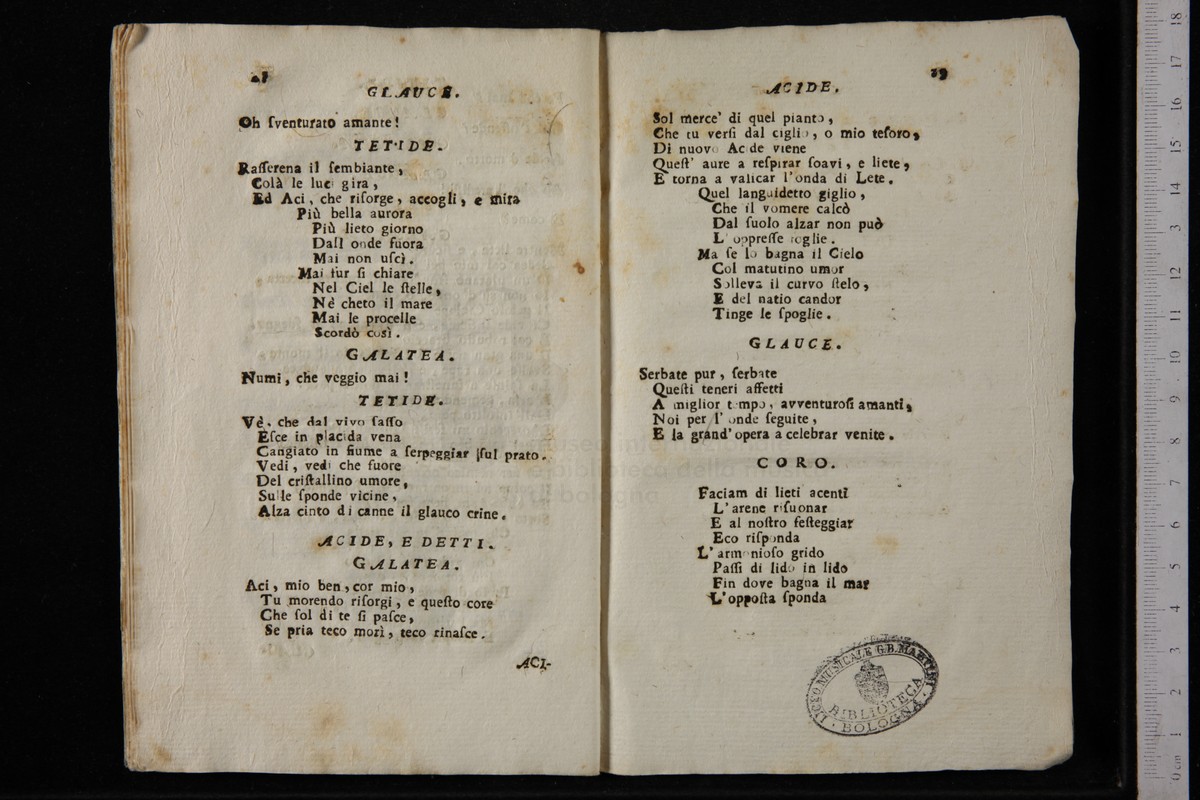 28
GLAUCE.
Oh ſventurato amante!
TETIDE.
Raſſerena il ſembiante,
Colà le luci gira,
Ed Aci, che riſorge, accogli, e mira
Più bella aurora
Più lieto giorno
Dall onde fuora
Mai non uſcì.
Mai fur ſi chiare
Nel Ciel le ſtelle,
Nè cheto il mare
Mai le procelle
Scordò così.
GALATEA.
Numi, che veggio mai!
TETIDE.
Vè, che dal vivo ſaſſo
Eſce in placida vena
Cangiato in fiume a ſerpeggiar ſul prato.
Vedi, vedi che fuore
Del criſtallino umore,
Sulle ſponde vicine,
Alza cinto di canne il glauco crine.
ACIDE, E DETTI.
GALATEA.
Aci, mio ben, cor mio,
Tu morendo riſorgi, e queſto core
Che ſol di te ſi paſce,
Se pria teco morì, teco rinaſce.
ACI-
29
ACIDE.
Sol merce' di quel pianto,
Che tu verſi dal ciglio, o mio teſoro,
Di nuovo Acide viene
Queſt' aure a reſpirar ſoavi, e liete,
E torna a valicar l'onda di Lete.
Quel languidetto giglio,
Che il vomere calcò
Dal ſuolo alzar non può
L' oppreſſe foglie.
Ma ſe lo bagna il Cielo
Col matutino umor
Solleva il curvo ſtelo,
E del natio candor
Tinge le ſpoglie.
GLAUCE.
Serbate pur, ſerbate
Queſti teneri affetti
A miglior tempo, avventuroſi amanti,
Noi per l' onde ſeguite,
E la grand' opera a celebrar venite.
CORO.
Faciam di lieti acenti
L' arene riſuonar
E al noſtro feſteggiar
Eco riſponda
L' armonioſo grido
Paſſi di lido in lido
Fin dove bagna il mar
L'oppoſta ſponda
LICEO MUSICALE G.B. MARTINI
BIBLIOTECA
BOLOGNA
museo internazionale
e biblioteca della musica
di bologna